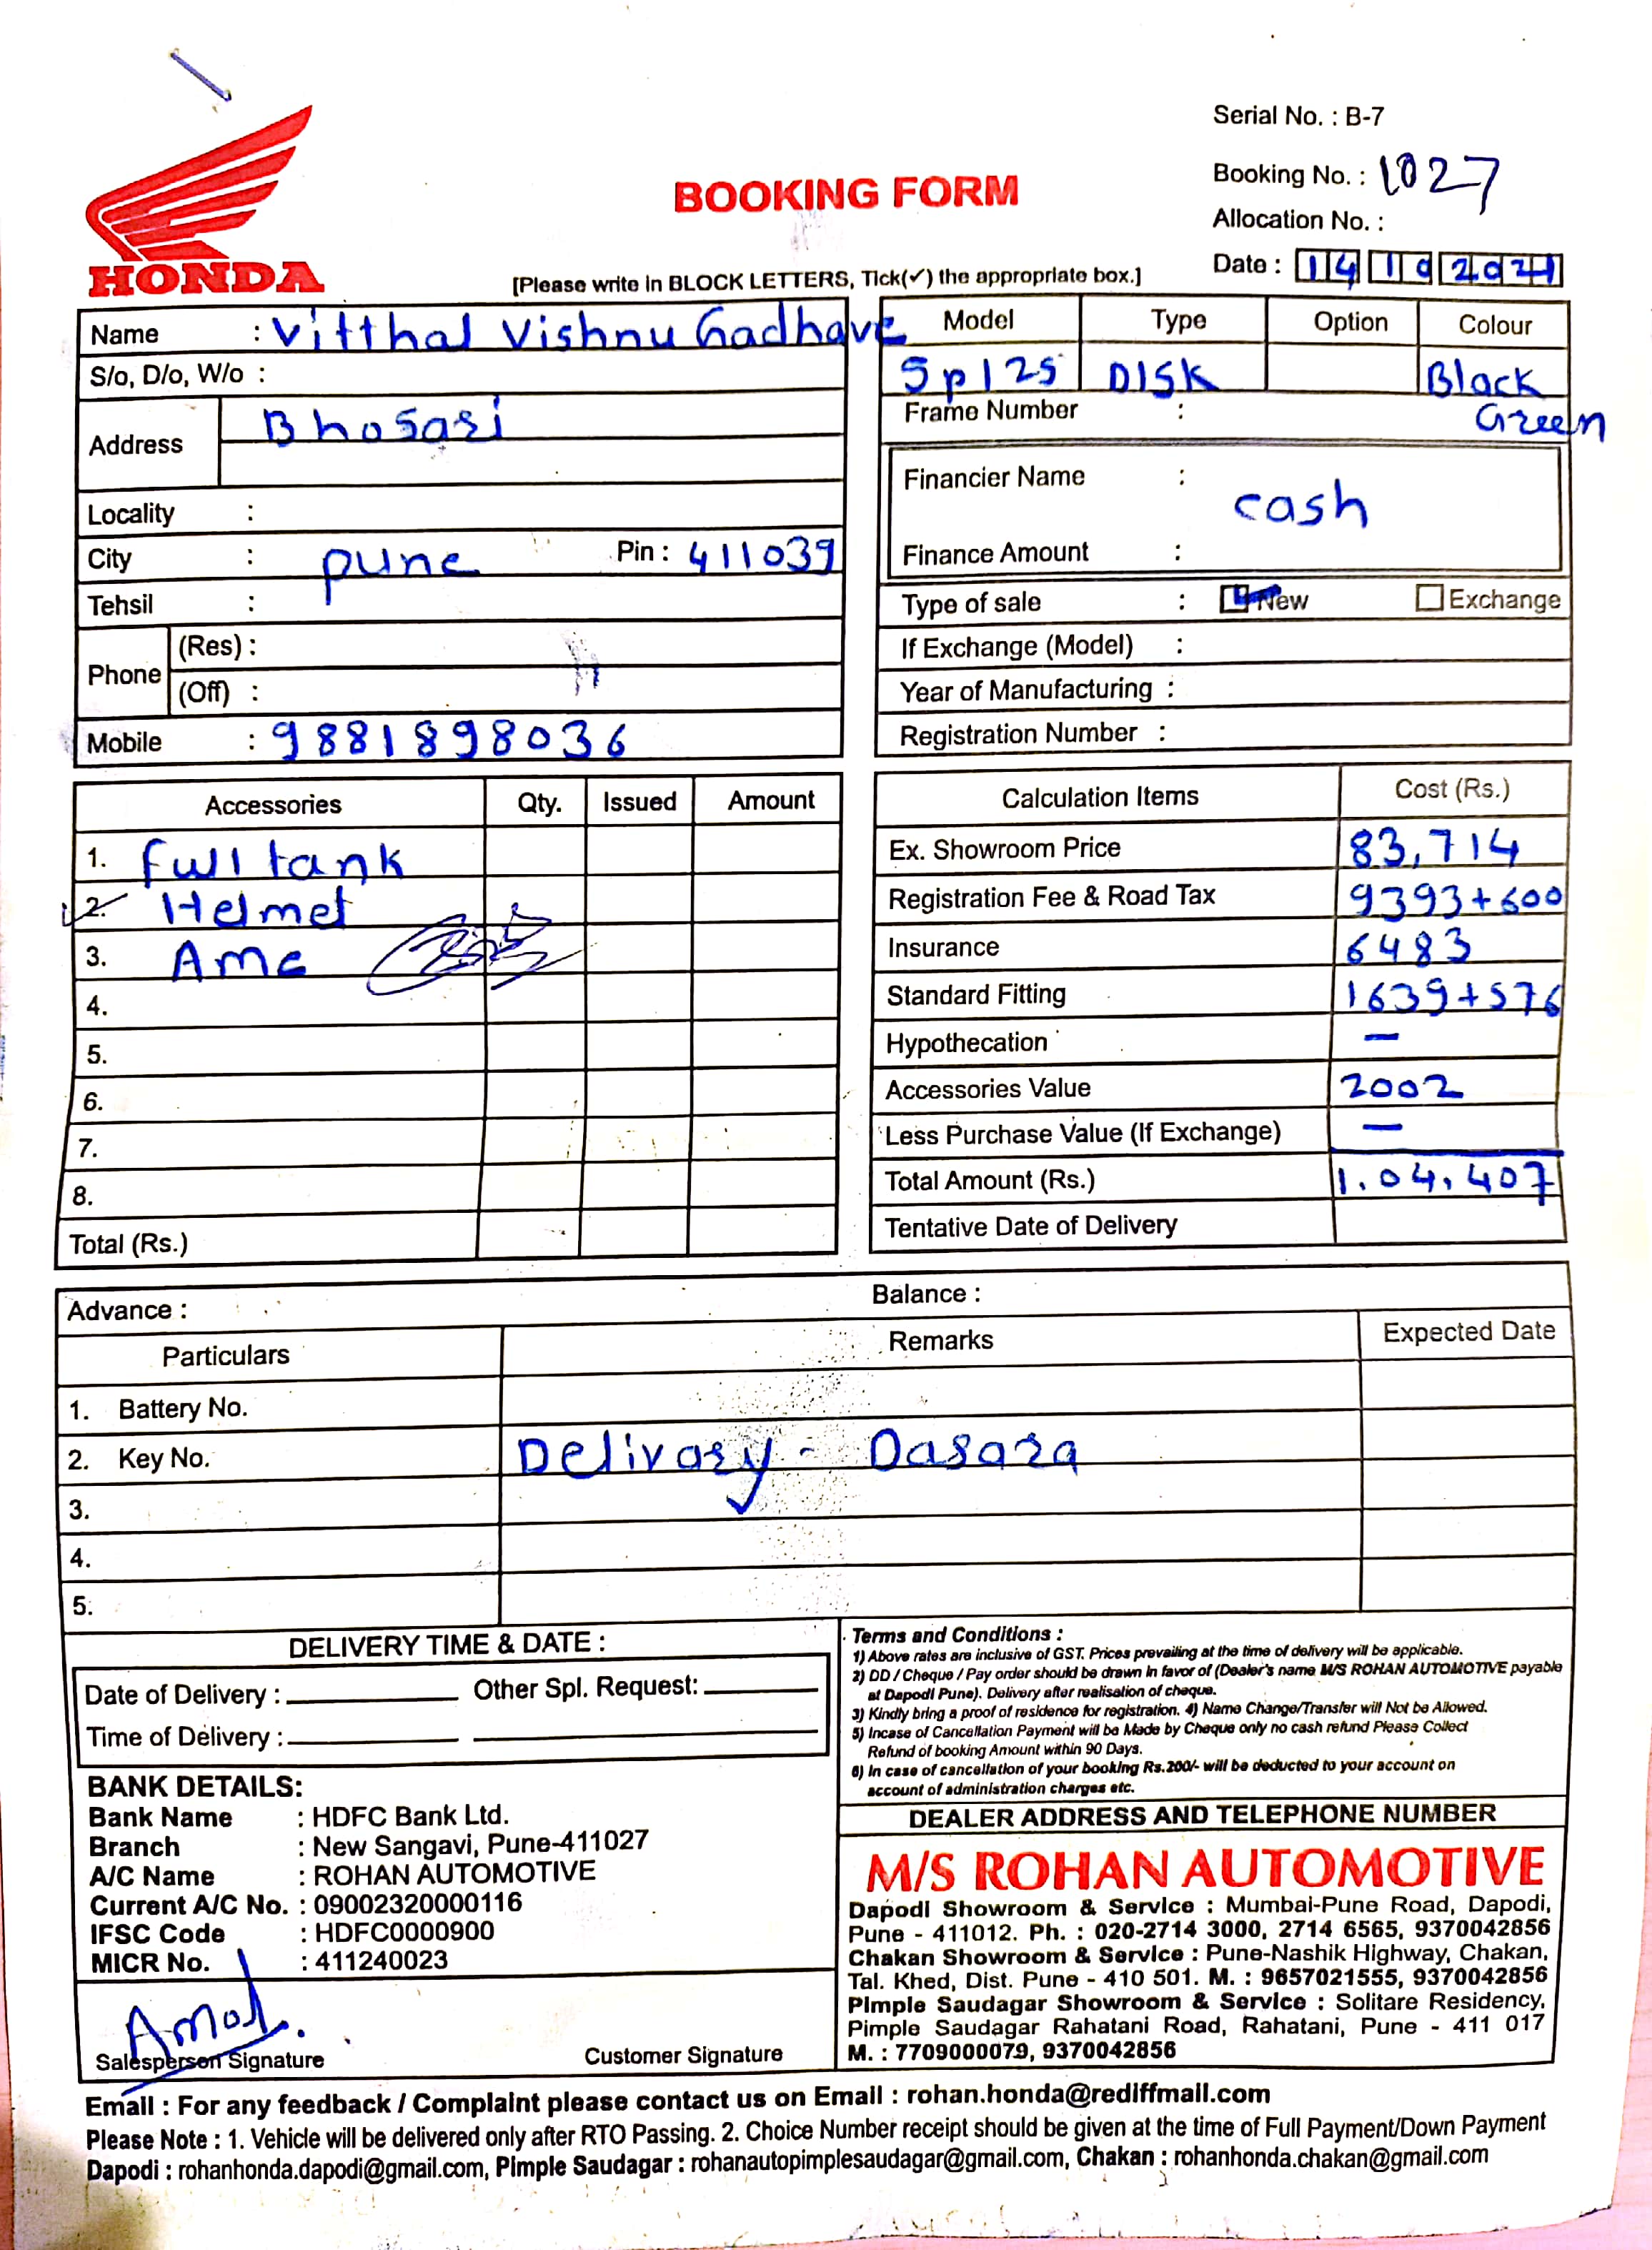 HONDA
BOOKING FORM
Serial No. : B-7
Booking No. : 1027
Allocation No. :
Date : 14 10 2021
[Please write in BLOCK LETTERS, Tick(✓) the appropriate box.]
Name : Vitthal Vishnu Gadhave
S/o, D/o, W/o :
Address Bhosari
Locality :
City : pune Pin : 411039
Tehsil :
Phone (Res) :
(Off) :
Mobile : 9881898036
Model Type Option Colour
Sp125 DISK Black
Green
Frame Number :
Financier Name :
cash
Finance Amount :
Type of sale : New Exchange
If Exchange (Model) :
Year of Manufacturing :
Registration Number :
Accessories Qty. Issued Amount
1. Full tank
2. Helmet
3. Amc
4.
5.
6.
7.
8.
Total (Rs.)
Calculation Items Cost (Rs.)
Ex. Showroom Price 83,714
Registration Fee & Road Tax 9393+600
Insurance 6483
Standard Fitting 1639+576
Hypothecation —
Accessories Value 2002
Less Purchase Value (If Exchange) —
Total Amount (Rs.) 1.04,407
Tentative Date of Delivery
Advance : Balance :
Particulars Remarks Expected Date
1. Battery No.
2. Key No. Delivary - Dasara
3.
4.
5.
DELIVERY TIME & DATE :
Date of Delivery : Other Spl. Request:
Time of Delivery :
BANK DETAILS:
Bank Name : HDFC Bank Ltd.
Branch : New Sangavi, Pune-411027
A/C Name : ROHAN AUTOMOTIVE
Current A/C No. : 09002320000116
IFSC Code : HDFC0000900
MICR No. : 411240023
Amol.
Salesperson Signature Customer Signature
Terms and Conditions :
1) Above rates are inclusive of GST. Prices prevailing at the time of delivery will be applicable.
2) DD / Cheque / Pay order should be drawn in favor of (Dealer's name M/S ROHAN AUTOMOTIVE payable
at Dapodi Pune). Delivery after realisation of cheque.
3) Kindly bring a proof of residence for registration. 4) Name Change/Transfer will Not be Allowed.
5) Incase of Cancellation Payment will be Made by Cheque only no cash refund Please Collect
Refund of booking Amount within 90 Days.
6) In case of cancellation of your booking Rs.200/- will be deducted to your account on
account of administration charges etc.
DEALER ADDRESS AND TELEPHONE NUMBER
M/S ROHAN AUTOMOTIVE
Dapodi Showroom & Service : Mumbai-Pune Road, Dapodi,
Pune - 411012. Ph. : 020-2714 3000, 2714 6565, 9370042856
Chakan Showroom & Service : Pune-Nashik Highway, Chakan,
Tal. Khed, Dist. Pune - 410 501. M. : 9657021555, 9370042856
Pimple Saudagar Showroom & Service : Solitare Residency,
Pimple Saudagar Rahatani Road, Rahatani, Pune - 411 017
M. : 7709000079, 9370042856
Email : For any feedback / Complaint please contact us on Email : rohan.honda@rediffmail.com
Please Note : 1. Vehicle will be delivered only after RTO Passing. 2. Choice Number receipt should be given at the time of Full Payment/Down Payment
Dapodi : rohanhonda.dapodi@gmail.com, Pimple Saudagar : rohanautopimplesaudagar@gmail.com, Chakan : rohanhonda.chakan@gmail.com